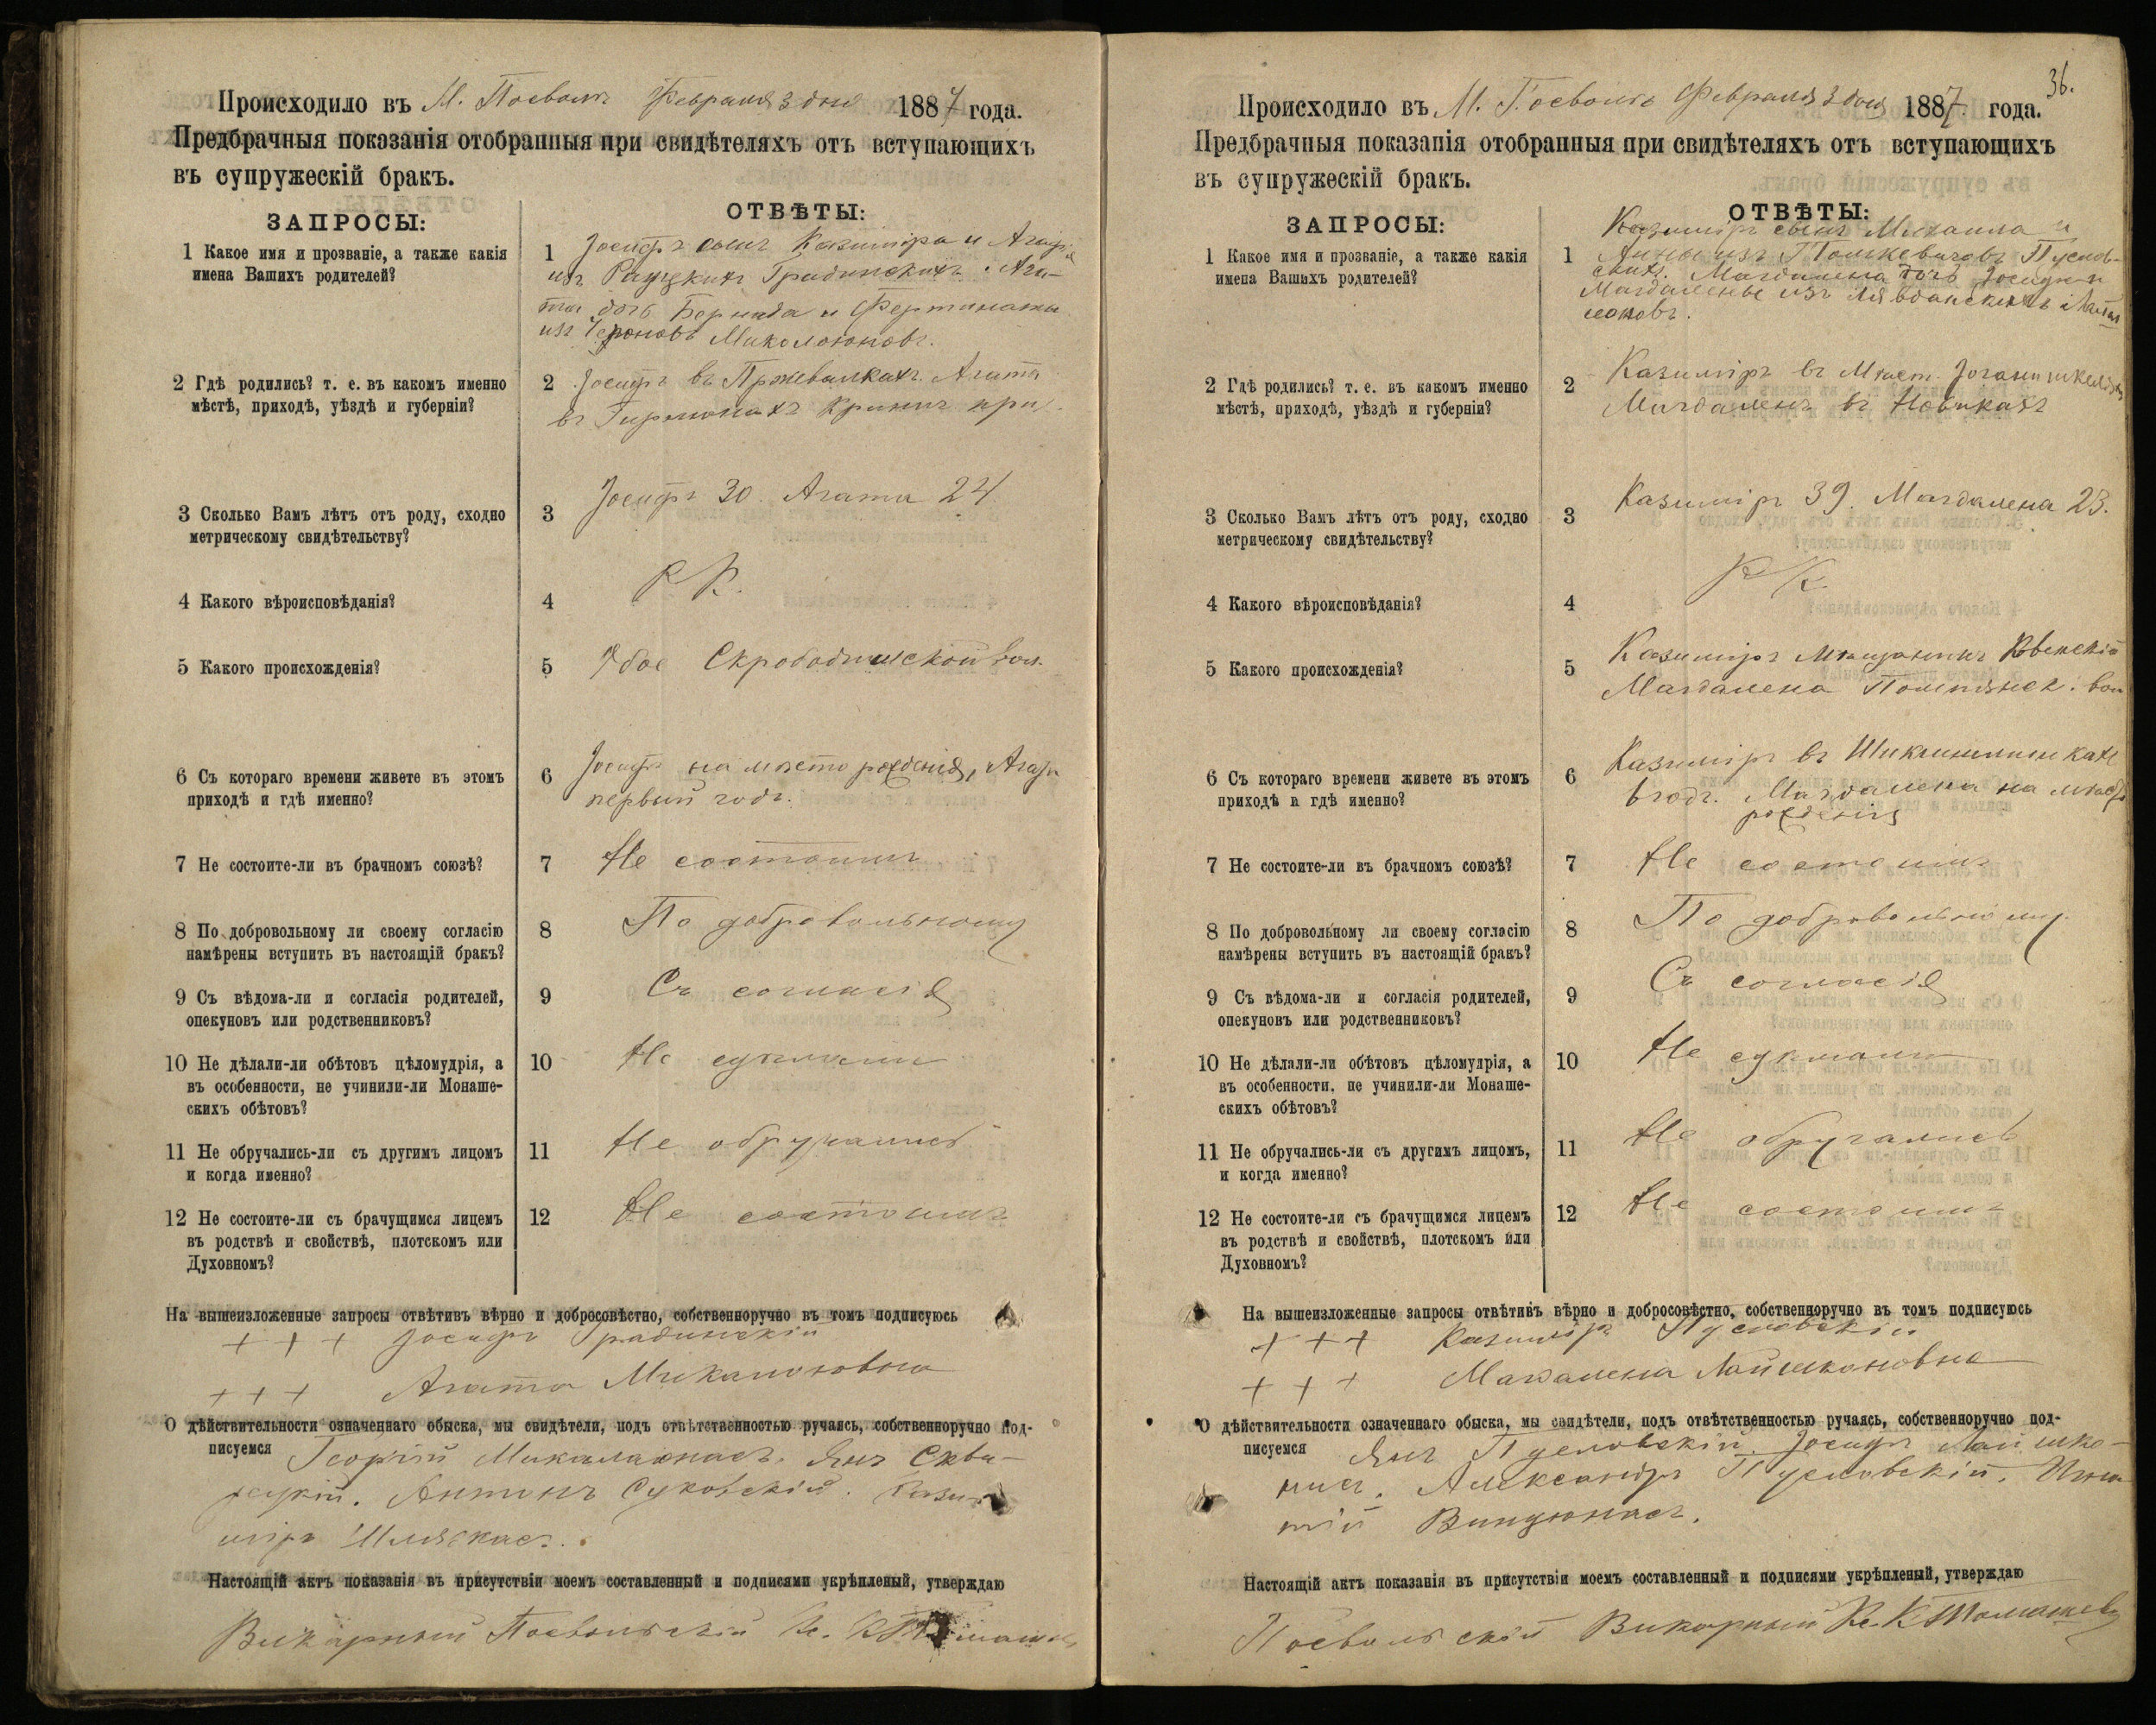 Происходило въ М. Поеволъ Февраля 3 дня 1887 года.
Предбрачныя показанія отобранныя при свидѣтеляхъ отъ вступающихъ
въ супружескій бракъ.
ЗАПРОСЫ:
ОТВѢТЫ:
1 Какое имя и прозваніе, а также какія
имена Вашихъ родителей?
1 Іосифъ сынъ Казиміра и Агаф
изъ Градинскихъ. Ага-
та дочь и
изъ
2 Гдѣ родились? т. е. въ какомъ именно
мѣстѣ, приходѣ, уѣздѣ и губерніи?
2 Іосифъ въ Пржевалкахъ. Агата
въ Кринич. при.
3 Сколько Вамъ лѣтъ отъ роду, сходно
метрическому свидѣтельству?
3 Іосифъ 30. Агата 24.
4 Какого вѣроисповѣданія?
4 Р К.
5 Какого происхожденія?
5 Обое вол.
6 Съ котораго времени живете въ этомъ
приходѣ и гдѣ именно?
6 Іосифъ на мѣсто рожденія, Агата
первый годъ.
7 Не состоите-ли въ брачномъ союзѣ?
7 Не состоимъ
8 По добровольному ли своему согласію
намѣрены вступить въ настоящій бракъ?
8 По добровольному
9 Съ вѣдома-ли и согласія родителей,
опекуновъ или родственниковъ?
9 Съ согласія
10 Не дѣлали-ли обѣтовъ цѣломудрія, а
въ особенности, не учинили-ли Монаше-
скихъ обѣтовъ?
10 Не
11 Не обручались-ли съ другимъ лицомъ
и когда именно?
11 Не обручались
12 Не состоите-ли съ брачущимся лицемъ
въ родствѣ и свойствѣ, плотскомъ или
Духовномъ?
12 Не состоимъ
На вышеизложенные запросы отвѣтивъ вѣрно и добросовѣстно, собственноручно въ томъ подписуюсь
+ + + Іосифъ Градинскій
+ + + Агата Микалюновна
О дѣйствительности означеннаго обыска, мы свидѣтели, подъ отвѣтственностью ручаясь, собственноручно под-
писуемся Георгій Янъ
Антонъ Кази-
міръ
Настоящій актъ показанія въ присутствіи моемъ составленный и подписями укрѣпленый, утверждаю
Викарный Поевольскій Кс. К.
36.
Происходило въ М. Поеволъ Февраля 3 дня 1887 года.
Предбрачныя показанія отобранныя при свидѣтеляхъ отъ вступающихъ
въ супружескій бракъ.
ЗАПРОСЫ:
ОТВѢТЫ:
1 Какое имя и прозваніе, а также какія
имена Вашихъ родителей?
1 Казиміръ сынъ Михаила и
Анны изъ Томкевичовъ Пуслов-
скихъ. Магдалена дочь Іосифа и
Магдалены изъ
2 Гдѣ родились? т. е. въ какомъ именно
мѣстѣ, приходѣ, уѣздѣ и губерніи?
2 Казиміръ въ Мѣст.
Магдалена въ Новикахъ
3 Сколько Вамъ лѣтъ отъ роду, сходно
метрическому свидѣтельству?
3 Казиміръ 39. Магдалена 23.
4 Какого вѣроисповѣданія?
4 Р К.
5 Какого происхожденія?
5 Казиміръ Мѣщанинъ Ковенскій
Магдалена вол
6 Съ котораго времени живете въ этомъ
приходѣ и гдѣ именно?
6 Казиміръ въ
Магдалена на мѣстѣ
рожденія
7 Не состоите-ли въ брачномъ союзѣ?
7 Не состоимъ
8 По добровольному ли своему согласію
намѣрены вступить въ настоящій бракъ?
8 По добровольному.
9 Съ вѣдома-ли и согласія родителей,
опекуновъ или родственниковъ?
9 Съ согласія
10 Не дѣлали-ли обѣтовъ цѣломудрія, а
въ особенности, не учинили-ли Монаше-
скихъ обѣтовъ?
10 Не
11 Не обручались-ли съ другимъ лицомъ,
и когда именно?
11 Не обручались
12 Не состоите-ли съ брачущимся лицемъ
въ родствѣ и свойствѣ, плотскомъ или
Духовномъ?
12 Не состоимъ
На вышеизложенные запросы отвѣтивъ вѣрно и добросовѣстно, собственноручно въ томъ подписуюсь
+ + + Казиміръ Пусловскій
+ + + Магдалена Лаймконовна
О дѣйствительности означеннаго обыска, мы свидѣтели, подъ отвѣтственностью ручаясь, собственноручно под-
писуемся Янъ Пусловскій. Іосифъ
Александръ Пусловскій. Игна-
тій
Настоящій актъ показанія въ присутствіи моемъ составленный и подписями укрѣпленый, утверждаю
Поевольскій Викарный Кс. К.